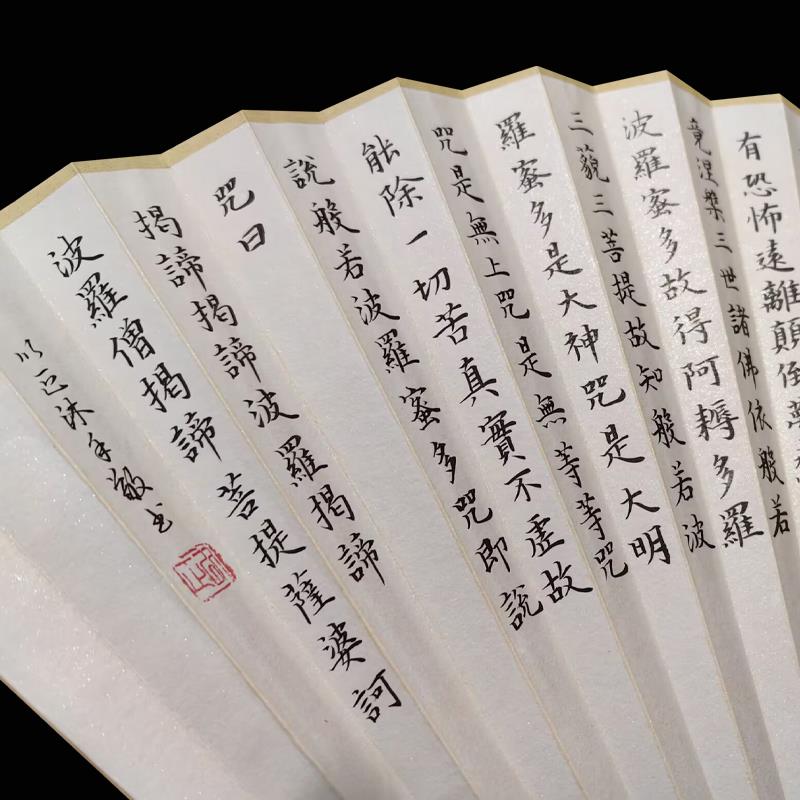 有恐怖遠離顛倒夢
竟涅槃三世諸佛依般若
波羅蜜多故得阿耨多羅
三藐三菩提故知般若波
羅蜜多是大神咒是大明
咒是無上咒是無等等咒
能除一切苦真實不虛故
說般若波羅蜜多咒即說
咒曰
揭諦揭諦波羅揭諦
波羅僧揭諦菩提薩婆訶
沐手敬书